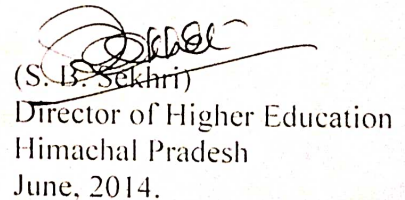 (S. B. Sekhri)
Director of Higher Education
Himachal Pradesh
June, 2014.